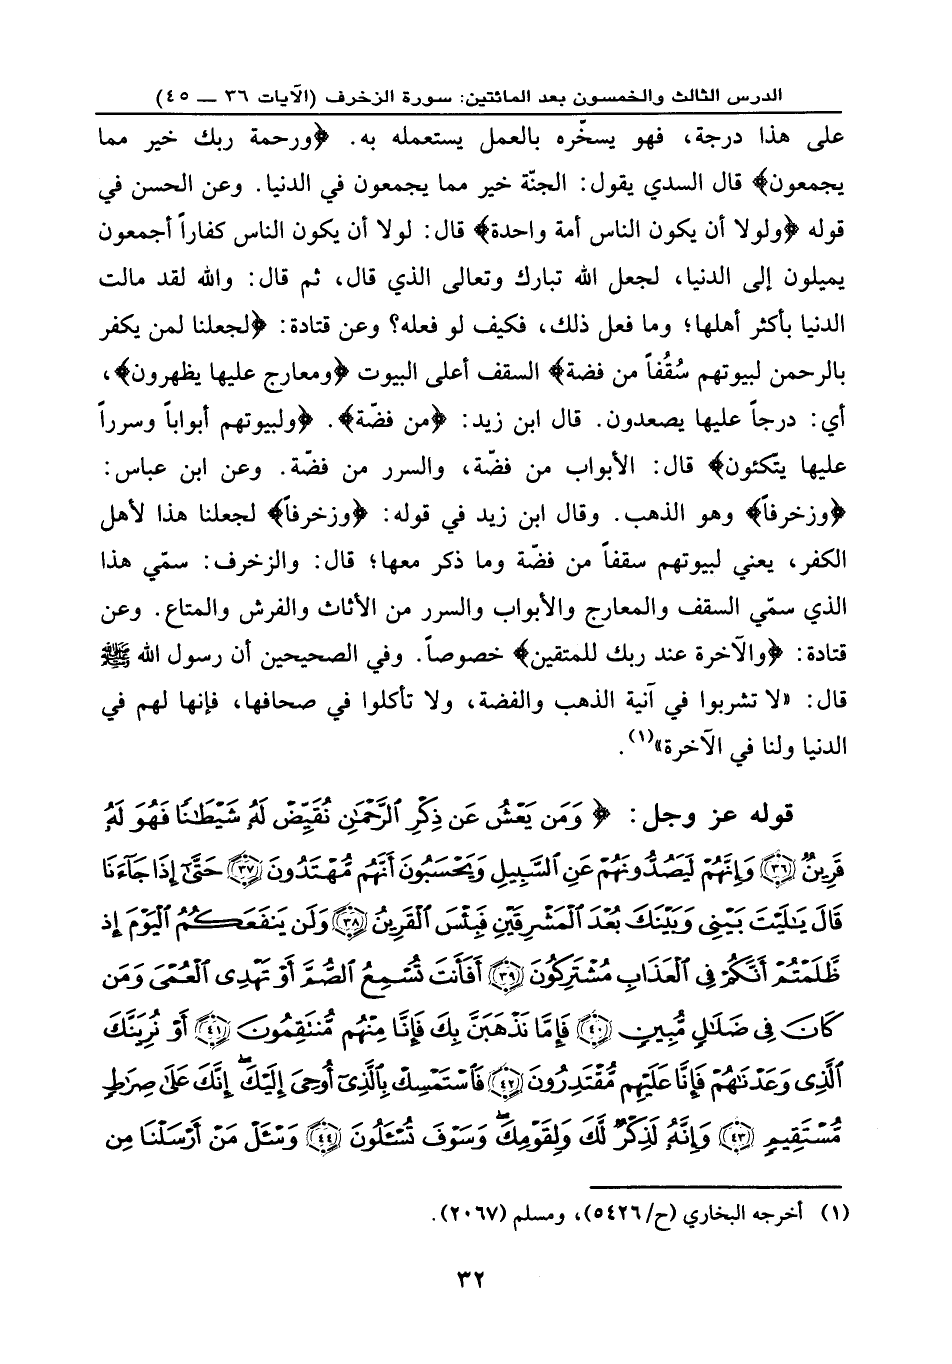 الدرس الثالث والخمسون بعد المائتين: سورة الزخرف (الآيات ٣٦ ـ ٤٥)
على هذا درجة، فهو يسخّره بالعمل يستعمله به. ﴿ورحمة ربك خير مما
يجمعون﴾ قال السدي يقول: الجنّة خير مما يجمعون في الدنيا. وعن الحسن في
قوله ﴿ولولا أن يكون الناس أمة واحدة﴾ قال: لولا أن يكون الناس كفاراً أجمعون
يميلون إلى الدنيا، لجعل الله تبارك وتعالى الذي قال، ثم قال: والله لقد مالت
الدنيا بأكثر أهلها؛ وما فعل ذلك، فكيف لو فعله؟ وعن قتادة: ﴿لجعلنا لمن يكفر
بالرحمن لبيوتهم سُقُفاً من فضة﴾ السقف أعلى البيوت ﴿ومعارج عليها يظهرون﴾،
أي: درجاً عليها يصعدون. قال ابن زيد: ﴿من فضّة﴾. ﴿ولبيوتهم أبواباً وسرراً
عليها يتكئون﴾ قال: الأبواب من فضّة، والسرر من فضّة. وعن ابن عباس:
﴿وزخرفاً﴾ وهو الذهب. وقال ابن زيد في قوله: ﴿وزخرفاً﴾ لجعلنا هذا لأهل
الكفر، يعني لبيوتهم سقفاً من فضّة وما ذكر معها؛ قال: والزخرف: سمّي هذا
الذي سمّي السقف والمعارج والأبواب والسرر من الأثاث والفرش والمتاع. وعن
قتادة: ﴿والآخرة عند ربك للمتقين﴾ خصوصاً. وفي الصحيحين أن رسول الله ﷺ
قال: «لا تشربوا في آنية الذهب والفضة، ولا تأكلوا في صحافها، فإنها لهم في
الدنيا ولنا في الآخرة»(١).
قوله عز وجل: ﴿ وَمَن يَعْشُ عَن ذِكْرِ ٱلرَّحْمَٰنِ نُقَيِّضْ لَهُۥ شَيْطَٰنًا فَهُوَ لَهُۥ
قَرِينٌ ﴿٣٦﴾ وَإِنَّهُمْ لَيَصُدُّونَهُمْ عَنِ ٱلسَّبِيلِ وَيَحْسَبُونَ أَنَّهُم مُّهْتَدُونَ ﴿٣٧﴾ حَتَّىٰٓ إِذَا جَآءَنَا
قَالَ يَٰلَيْتَ بَيْنِى وَبَيْنَكَ بُعْدَ ٱلْمَشْرِقَيْنِ فَبِئْسَ ٱلْقَرِينُ ﴿٣٨﴾ وَلَن يَنفَعَكُمُ ٱلْيَوْمَ إِذ
ظَّلَمْتُمْ أَنَّكُمْ فِى ٱلْعَذَابِ مُشْتَرِكُونَ ﴿٣٩﴾ أَفَأَنتَ تُسْمِعُ ٱلصُّمَّ أَوْ تَهْدِى ٱلْعُمْىَ وَمَن
كَانَ فِى ضَلَٰلٍ مُّبِينٍ ﴿٤٠﴾ فَإِمَّا نَذْهَبَنَّ بِكَ فَإِنَّا مِنْهُم مُّنتَقِمُونَ ﴿٤١﴾ أَوْ نُرِيَنَّكَ
ٱلَّذِى وَعَدْنَٰهُمْ فَإِنَّا عَلَيْهِم مُّقْتَدِرُونَ ﴿٤٢﴾ فَٱسْتَمْسِكْ بِٱلَّذِىٓ أُوحِىَ إِلَيْكَ ۖ إِنَّكَ عَلَىٰ صِرَٰطٍ
مُّسْتَقِيمٍ ﴿٤٣﴾ وَإِنَّهُۥ لَذِكْرٌ لَّكَ وَلِقَوْمِكَ ۖ وَسَوْفَ تُسْـَٔلُونَ ﴿٤٤﴾ وَسْـَٔلْ مَنْ أَرْسَلْنَا مِن
(١) أخرجه البخاري (ح/٥٤٢٦)، ومسلم (٢٠٦٧).
٣٢